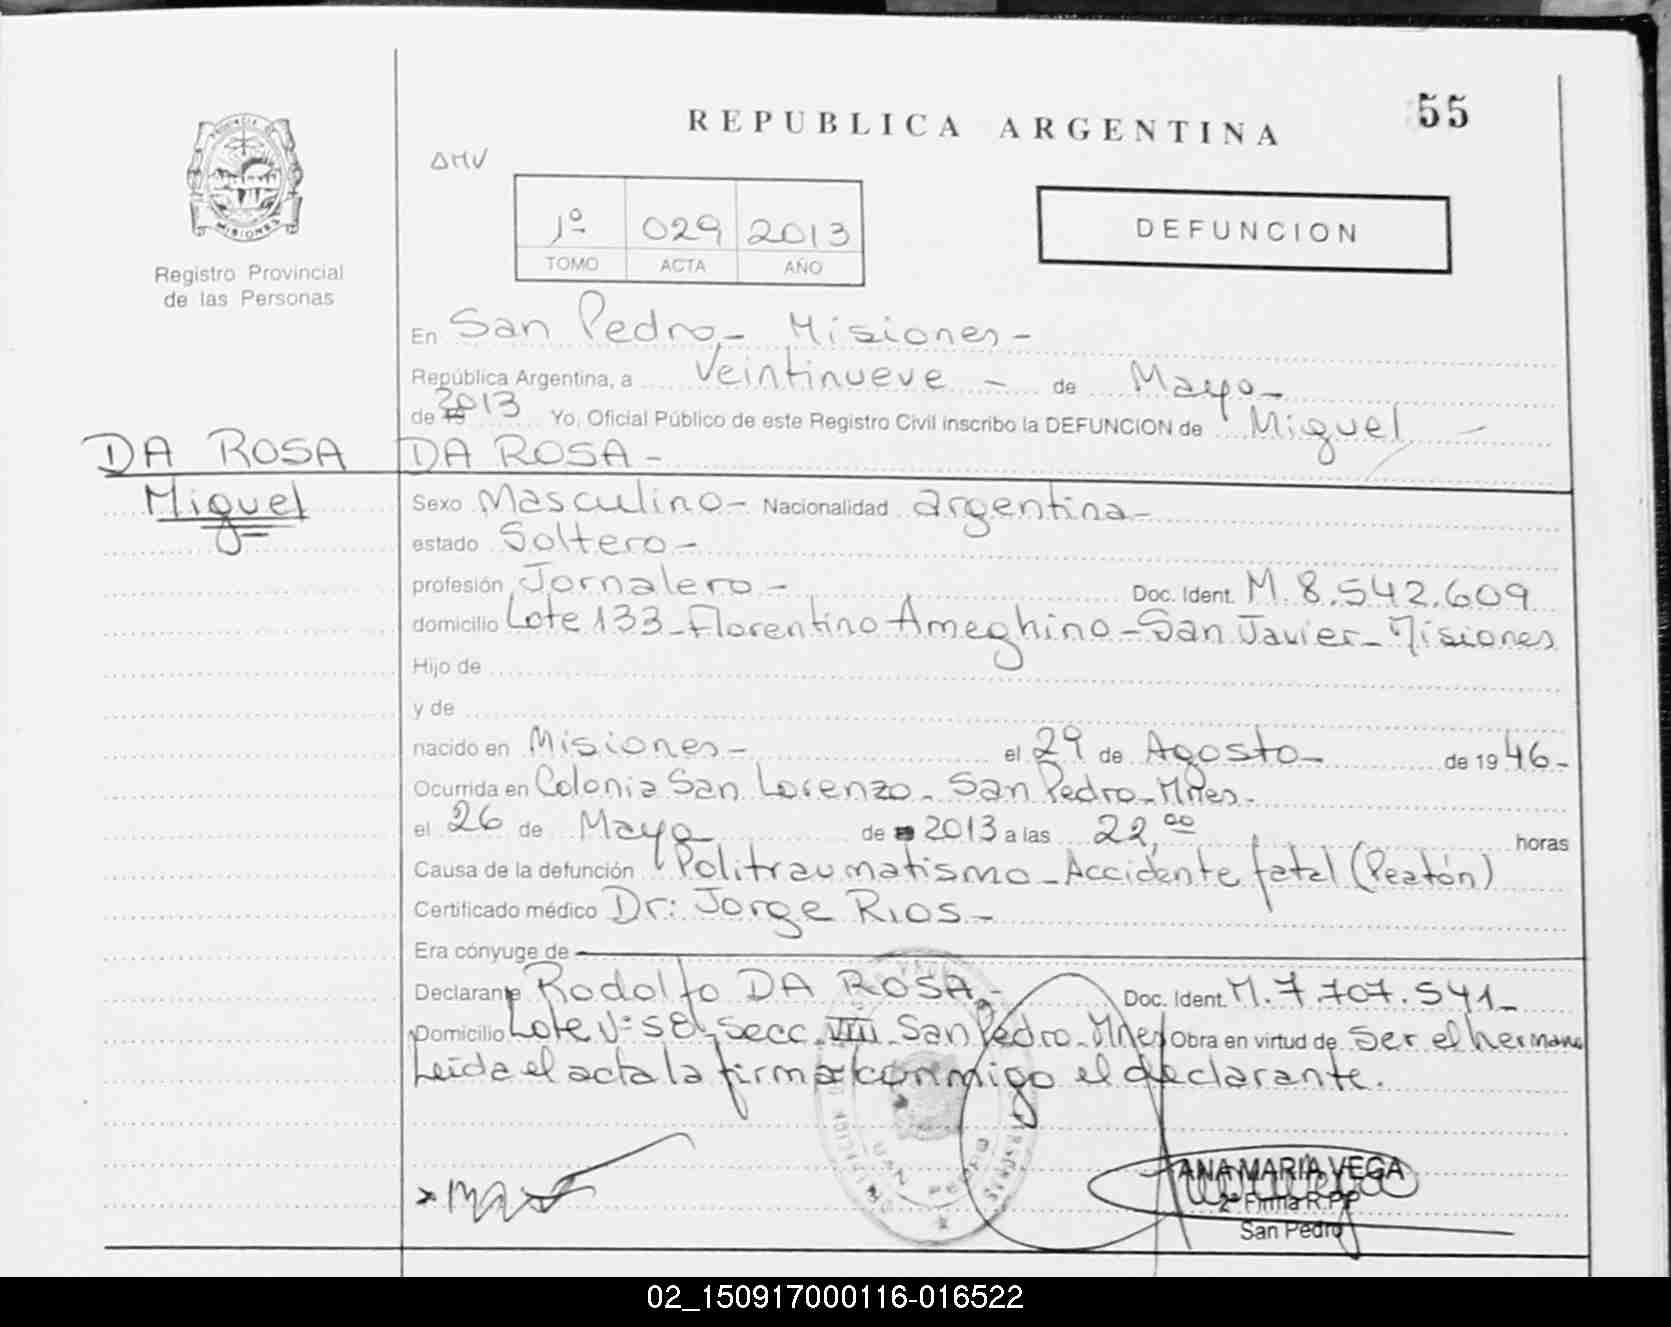 REPUBLICA ARGENTINA
55
PROVINCIA DE
MISIONES
Registro Provincial
de las Personas
AMV
1º 029 2013
TOMO ACTA AÑO
DEFUNCION
En San Pedro - Misiones -
República Argentina, a Veintinueve - de Mayo -
de 19 2013 Yo, Oficial Público de este Registro Civil inscribo la DEFUNCION de Miguel -
DA ROSA
Miguel
DA ROSA -
Sexo Masculino - Nacionalidad argentina -
estado Soltero -
profesión Jornalero - Doc. Ident. M. 8.542.609
domicilio Lote 133 - Florentino Ameghino - San Javier - Misiones
Hijo de
y de
nacido en Misiones - el 29 de Agosto - de 1946 -
Ocurrida en Colonia San Lorenzo - San Pedro - Mnes -
el 26 de Mayo de 2013 a las 22,00 horas
Causa de la defunción Politraumatismo - Accidente fatal (Peatón)
Certificado médico Dr: Jorge Rios -
Era cónyuge de
Declarante Rodolfo DA ROSA - Doc. Ident. M. 7.707.541 -
Domicilio Lote Nº 58 - Secc. VIII - San Pedro - Mnes Obra en virtud de ser el hermano
Leida el acta la firma conmigo el declarante.
SAN PEDRO
ANA MARIA VEGA
2º Firma R.P.P
San Pedro
02_150917000116-016522